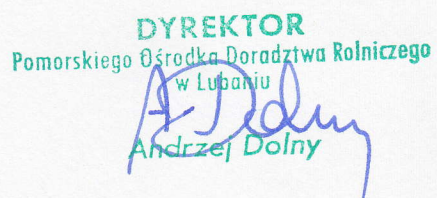 DYREKTOR
Pomorskiego Ośrodka Doradztwa Rolniczego
w Lubaniu
A. Dolny
Andrzej Dolny